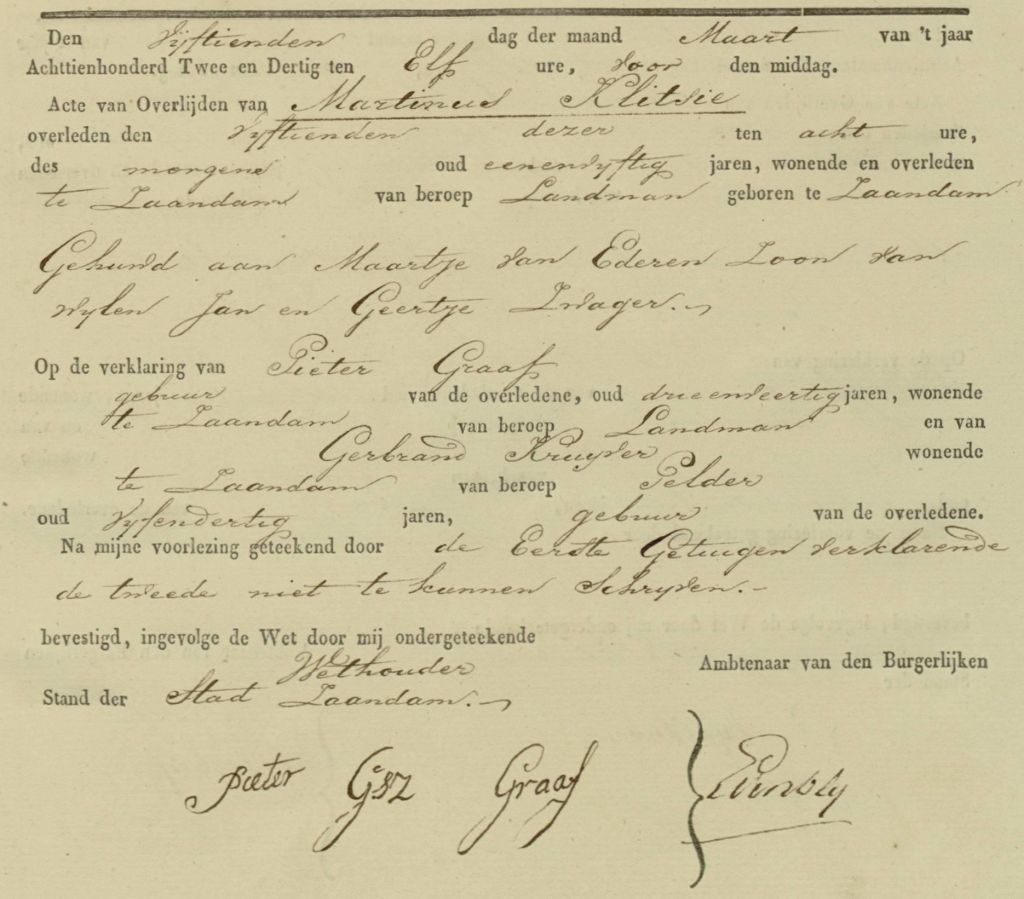 Den Vijftienden dag der maand Maart van 't jaar
Achttienhonderd Twee en Dertig ten Elf ure, voor den middag.
Acte van Overlijden van Martinus Klitsie
overleden den Vijftienden dezer ten acht ure,
des morgens oud eenenvyftig jaren, wonende en overleden
te Zaandam van beroep Landman geboren te Zaandam
Gehuwd aan Maartje van Ederen Zoon van
wylen Jan en Geertje Zwager.
Op de verklaring van Pieter Graaf
gebuur van de overledene, oud drieenveertig jaren, wonende
te Zaandam van beroep Landman en van
Gerbrand Kruyver wonende
te Zaandam van beroep Pelder
oud Vyfendertig jaren, gebuur van de overledene.
Na mijne voorlezing geteekend door de Eerste Getuigen verklarende
de tweede niet te kunnen Schryven.-
bevestigd, ingevolge de Wet door mij ondergeteekende
Wethouder Ambtenaar van den Burgerlijken
Stand der Stad Zaandam.
Pieter Gsz Graaf